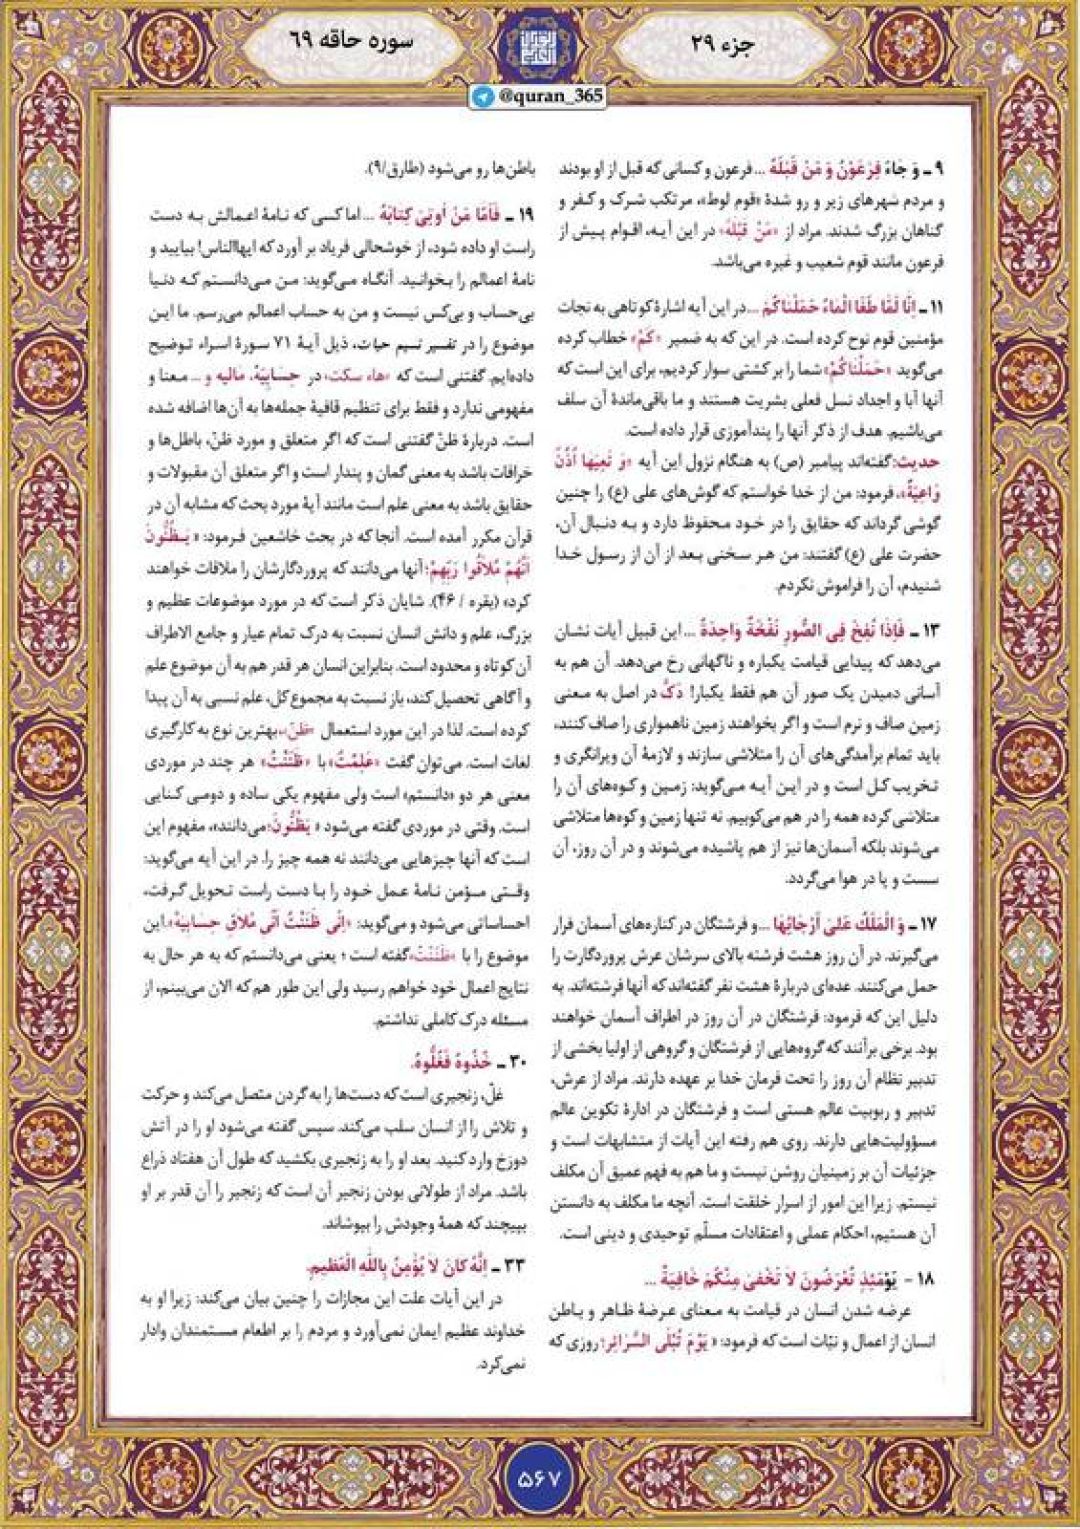 جزء ۲۹
سوره حاقه ۶۹
@quran_365
۹ ـ وَ جَاءَ فِرْعَوْنُ وَ مَنْ قَبْلَهُ ... فرعون و کسانی که قبل از او بودند
و مردم شهرهای زیر و رو شدهٔ «قوم لوط»، مرتکب شرک و کفر و
گناهان بزرگ شدند. مراد از «مَنْ قَبْلَهُ» در این آیه، اقوام پیش از
فرعون مانند قوم شعیب و غیره می‌باشد.
۱۱ ـ اِنَّا لَمَّا طَغَا الْمَاءُ حَمَلْنَاكُمْ ... در این آیه اشارهٔ کوتاهی به نجات
مؤمنین قوم نوح کرده است. در این که به ضمیر «كُمْ» خطاب کرده
می‌گوید «حَمَلْنَاكُمْ» شما را بر کشتی سوار کردیم، برای این است که
آنها آبا و اجداد نسل فعلی بشریت هستند و ما باقی‌ماندهٔ آن سلف
می‌باشیم. هدف از ذکر آنها را پندآموزی قرار داده است.
حدیث: گفته‌اند پیامبر (ص) به هنگام نزول این آیه «وَ تَعِيَهَا اُذُنٌ
وَاعِيَةٌ»، فرمود: من از خدا خواستم که گوش‌های علی (ع) را چنین
گوشی گرداند که حقایق را در خود محفوظ دارد و به دنبال آن،
حضرت علی (ع) گفتند: من هر سخنی بعد از آن از رسول خدا
شنیدم، آن را فراموش نکردم.
۱۳ ـ فَاِذَا نُفِخَ فِی الصُّورِ نَفْخَةٌ وَاحِدَةٌ ... این قبیل آیات نشان
می‌دهد که پیدایی قیامت یکباره و ناگهانی رخ می‌دهد. آن هم به
آسانی دمیدن یک صور آن هم فقط یکبار! دَكَّ در اصل به معنی
زمین صاف و نرم است و اگر بخواهند زمین ناهمواری را صاف کنند،
باید تمام برآمدگی‌های آن را متلاشی سازند و لازمهٔ آن ویرانگری و
تخریب کل است و در این آیه می‌گوید: زمین و کوه‌های آن را
متلاشی کرده همه را در هم می‌کوبیم. نه تنها زمین و کوه‌ها متلاشی
می‌شوند بلکه آسمان‌ها نیز از هم پاشیده می‌شوند و در آن روز، آن
سست و پا در هوا می‌گردد.
۱۷ ـ وَ الْمَلَكُ عَلیٰ اَرْجَائِهَا ... و فرشتگان در کناره‌های آسمان قرار
می‌گیرند. در آن روز هشت فرشته بالای سرشان عرش پروردگارت را
حمل می‌کنند. عده‌ای دربارهٔ هشت نفر گفته‌اند که آنها فرشته‌اند. به
دلیل این که فرمود: فرشتگان در آن روز در اطراف آسمان خواهند
بود. برخی برآنند که گروه‌هایی از فرشتگان و گروهی از اولیا بخشی از
تدبیر نظام آن روز را تحت فرمان خدا بر عهده دارند. مراد از عرش،
تدبیر و ربوبیت عالم هستی است و فرشتگان در ادارهٔ تکوین عالم
مسؤولیت‌هایی دارند. روی هم رفته این آیات از متشابهات است و
جزئیات آن بر زمینیان روشن نیست و ما هم به فهم عمیق آن مکلف
نیستم. زیرا این امور از اسرار خلقت است. آنچه ما مکلف به دانستن
آن هستیم، احکام عملی و اعتقادات مسلّم توحیدی و دینی است.
۱۸ - يَوْمَئِذٍ تُعْرَضُونَ لَا تَخْفیٰ مِنْكُمْ خَافِيَةٌ ...
عرضه شدن انسان در قیامت به معنای عرضهٔ ظاهر و باطن
انسان از اعمال و نیّات است که فرمود: «يَوْمَ تُبْلَى السَّرَائِرُ؛ روزی که
باطن‌ها رو می‌شود (طارق/۹).
۱۹ ـ فَاَمَّا مَنْ اُوتِیَ كِتَابَهُ ... اما کسی که نامهٔ اعمالش به دست
راست او داده شود، از خوشحالی فریاد بر آورد که ایهاالناس! بیایید و
نامهٔ اعمالم را بخوانید. آنگاه می‌گوید: من می‌دانستم که دنیا
بی‌حساب و بی‌کس نیست و من به حساب اعمالم می‌رسم. ما این
موضوع را در تفسیر نسیم حیات، ذیل آیهٔ ۷۱ سورهٔ اسراء توضیح
داده‌ایم. گفتنی است که «هاء سکت» در حِسَابِيَهْ، مالیه و ... معنا و
مفهومی ندارد و فقط برای تنظیم قافیهٔ جمله‌ها به آن‌ها اضافه شده
است. دربارهٔ ظنّ گفتنی است که اگر متعلق و مورد ظنّ، باطل‌ها و
خرافات باشد به معنی گمان و پندار است و اگر متعلق آن مقبولات و
حقایق باشد به معنی علم است مانند آیهٔ مورد بحث که مشابه آن در
قرآن مکرر آمده است. آنجا که در بحث خاشعین فرمود: «يَظُنُّونَ
اَنَّهُمْ مُلَاقُوا رَبِّهِمْ؛ آنها می‌دانند که پروردگارشان را ملاقات خواهند
کرد» (بقره / ۴۶). شایان ذکر است که در مورد موضوعات عظیم و
بزرگ، علم و دانش انسان نسبت به درک تمام عیار و جامع الاطراف
آن کوتاه و محدود است. بنابراین انسان هر قدر هم به آن موضوع علم
و آگاهی تحصیل کند، باز نسبت به مجموع کل، علم نسبی به آن پیدا
کرده است. لذا در این مورد استعمال «ظَنّ»، بهترین نوع به کارگیری
لغات است. می‌توان گفت «عَلِمْتُ» با «ظَنَنْتُ» هر چند در موردی
معنی هر دو «دانستم» است ولی مفهوم یکی ساده و دومی کنایی
است. وقتی در موردی گفته می‌شود «يَظُنُّونَ؛ می‌دانند»، مفهوم این
است که آنها چیزهایی می‌دانند نه همه چیز را. در این آیه می‌گوید:
وقتی مؤمن نامهٔ عمل خود را با دست راست تحویل گرفت،
احساساتی می‌شود و می‌گوید: «اِنّی ظَنَنْتُ اَنّی مُلَاقٍ حِسَابِيَهْ». این
موضوع را با «ظَنَنْتُ» گفته است ؛ یعنی می‌دانستم که به هر حال به
نتایج اعمال خود خواهم رسید ولی این طور هم که الان می‌بینم، از
مسئله درک کاملی نداشتم.
۳۰ ـ خُذُوهُ فَغُلُّوهُ.
غلّ، زنجیری است که دست‌ها را به گردن متصل می‌کند و حرکت
و تلاش را از انسان سلب می‌کند. سپس گفته می‌شود او را در آتش
دوزخ وارد کنید. بعد او را به زنجیری بکشید که طول آن هفتاد ذراع
باشد. مراد از طولانی بودن زنجیر آن است که زنجیر را آن قدر بر او
بپیچند که همهٔ وجودش را بپوشاند.
۳۳ ـ اِنَّهُ كَانَ لَا يُؤْمِنُ بِاللّٰهِ الْعَظيمِ.
در این آیات علت این مجازات را چنین بیان می‌کند: زیرا او به
خداوند عظیم ایمان نمی‌آورد و مردم را بر اطعام مستمندان وادار
نمی‌کرد.
۵۶۷